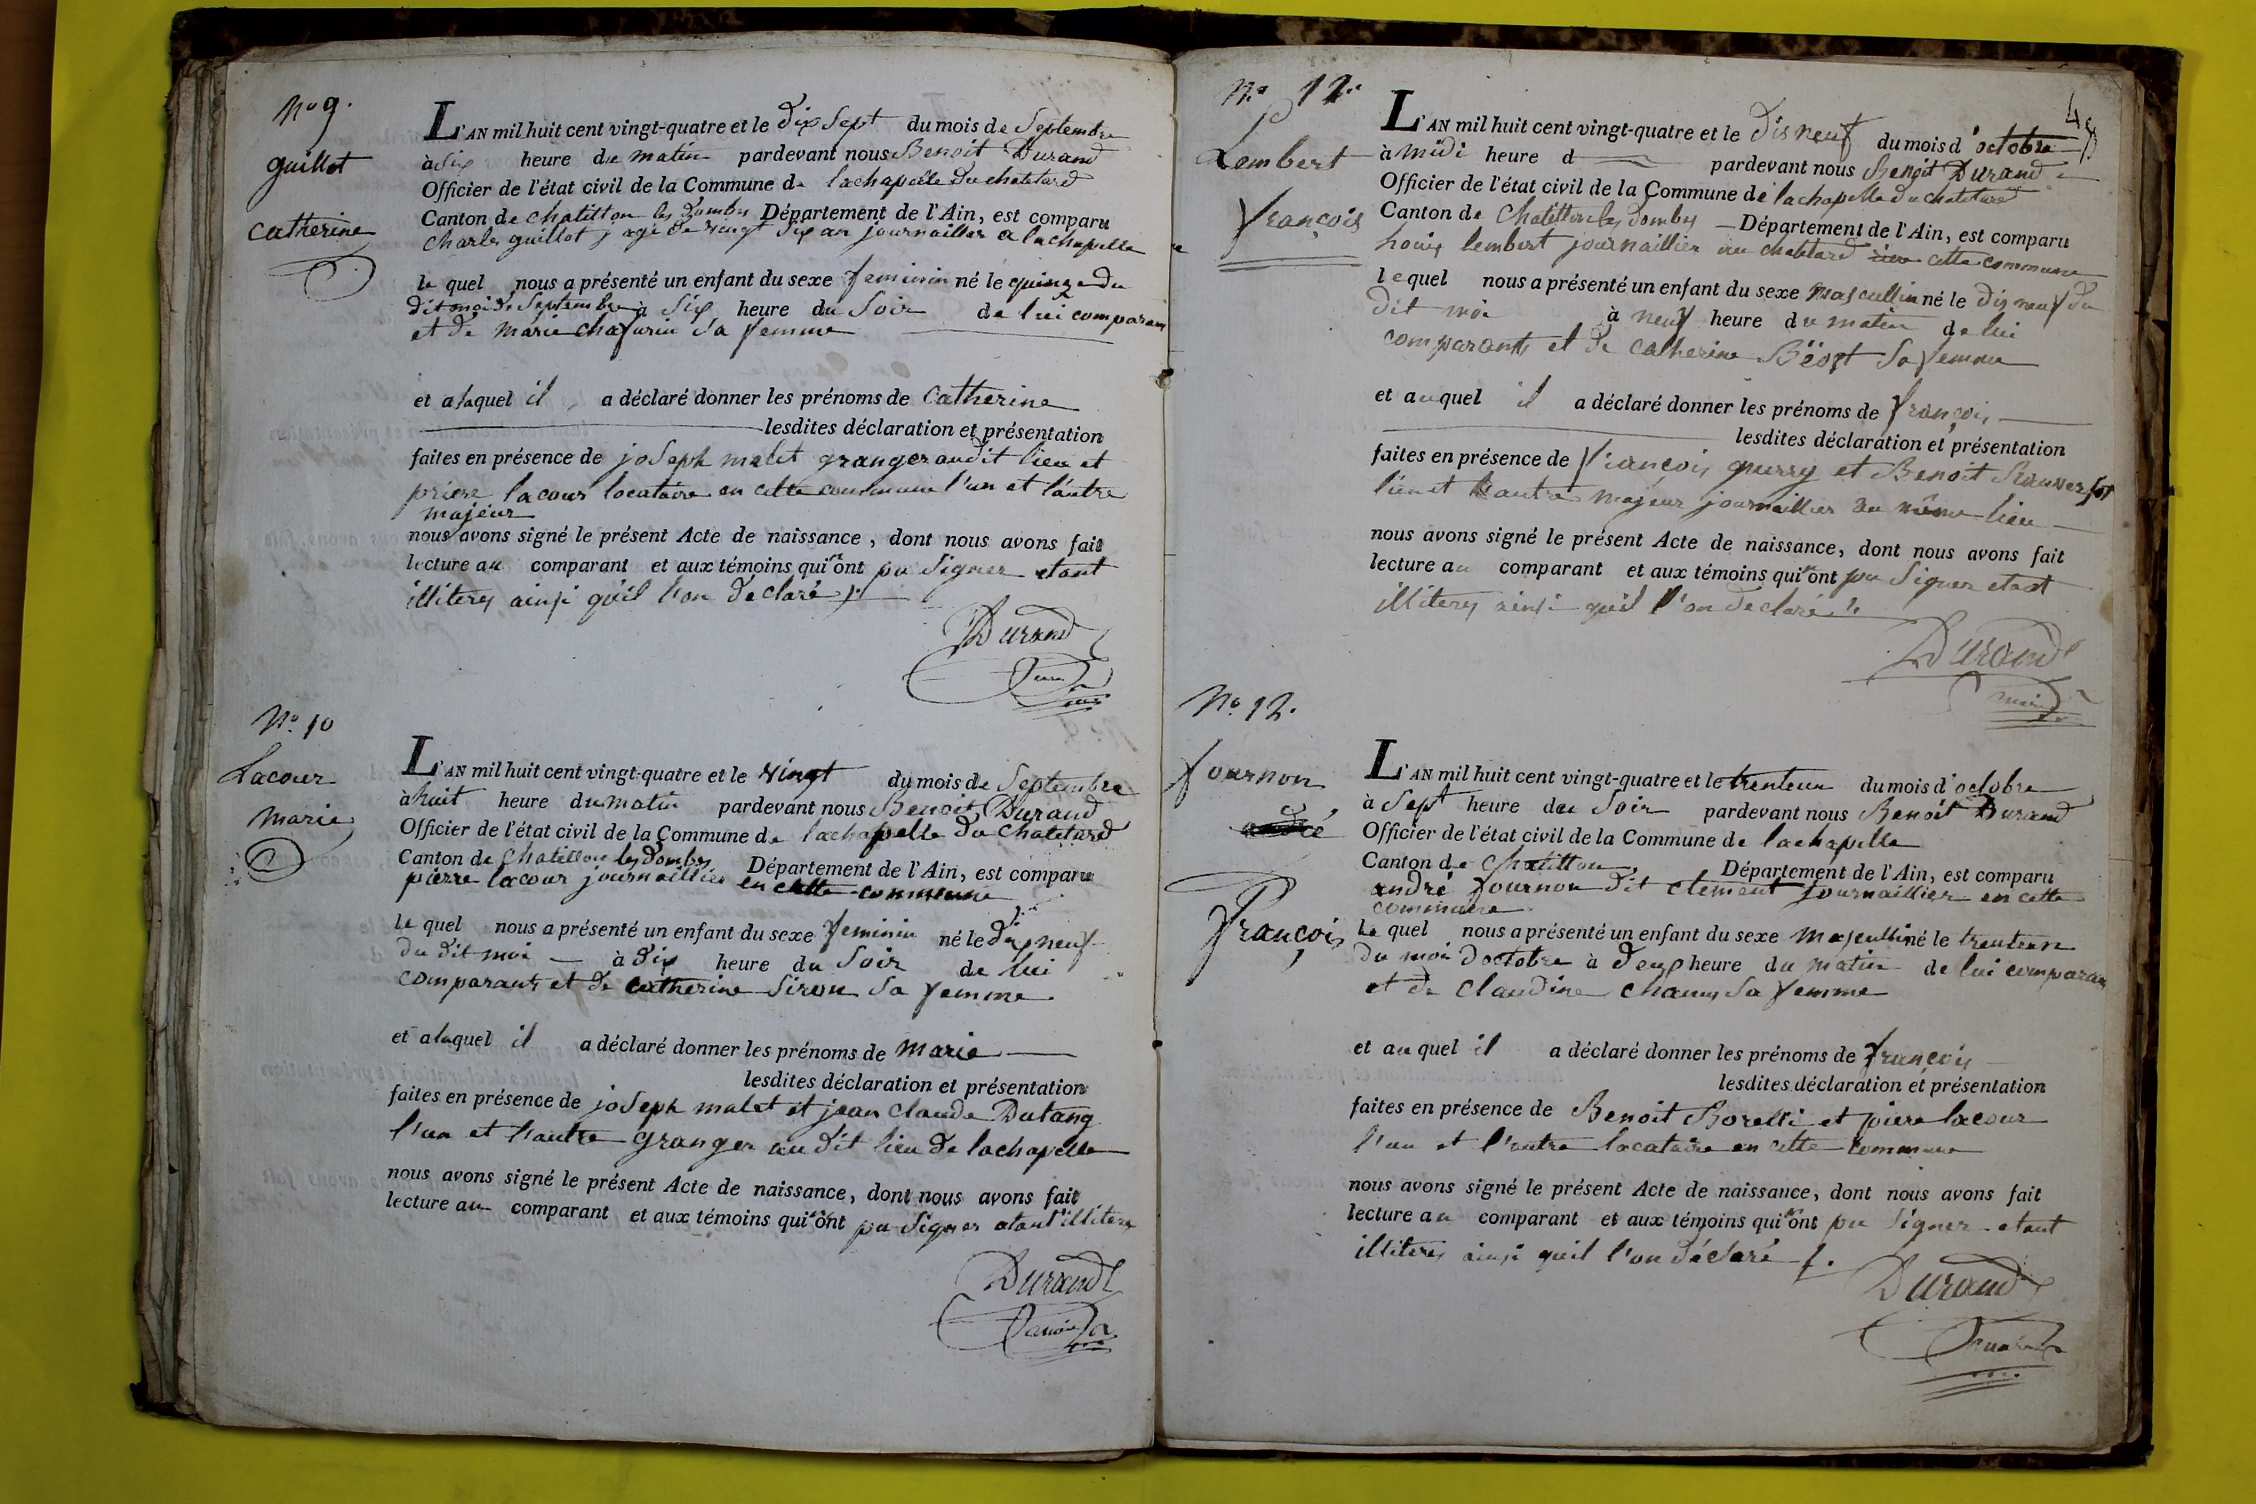 No 9.
guillot
Catherine
L'AN mil huit cent vingt-quatre et le dix Sept du mois de Septembre
à Six heure du matin pardevant nous Benoit Durand
Officier de l'état civil de la Commune de lachapelle du chatelard
Canton de chatillon les dombes Département de l'Ain, est comparu
Charles guillot agé de vingt Six an journaillier a lachapelle
le quel nous a présenté un enfant du sexe feminin né le quinze du
dit moi de Septembre à Six heure du Soir de lui comparan
et de marie chafurin Sa femme
et a laquel il a déclaré donner les prénoms de Catherine
lesdites déclaration et présentation
faites en présence de joSeph malet granger audit lieu et
priere lacour locataire en cette commune l'un et l'autre
majeur
nous avons signé le présent Acte de naissance, dont nous avons fait
lecture au comparant et aux témoins qui n'ont pu Signer etant
illiterés ainsi qu'il l'on déclaré
Durand
No. 10
Lacour
marie
L'AN mil huit cent vingt-quatre et le vingt du mois de Septembre
à huit heure du matin pardevant nous Benoit Durand
Officier de l'état civil de la Commune de lachapelle du Chatelard
Canton de Chatillon les dombes Département de l'Ain, est comparu
pierre lacour journaillier en cette commune
le quel nous a présenté un enfant du sexe feminin né le dix neuf
du dit moi à dix heure du Soir de lui
comparant et de catherine Sirou Sa femme
et a laquel il a déclaré donner les prénoms de marie
lesdites déclaration et présentation
faites en présence de joSeph malet et jean claude Dutang
l'un et l'autre granger au dit lieu de lachapelle
nous avons signé le présent Acte de naissance, dont nous avons fait
lecture au comparant et aux témoins qui n'ont pu Signer etant illiteré
Durand
No 12.
4
Lembert
françois
L'AN mil huit cent vingt-quatre et le dis neuf du mois d'octobre
à midi heure d pardevant nous Benoit Durand
Officier de l'état civil de la Commune de lachapelle du chatelard
Canton de Chatillon les dombes Département de l'Ain, est comparu
louis lembert journaillier au chatelard cette commune
lequel nous a présenté un enfant du sexe masculin né le dis neuf du
dit moi à neuf heure du matin de lui
comparant et de catherine Béost Sa femme
et auquel il a déclaré donner les prénoms de françois
lesdites déclaration et présentation
faites en présence de françois guerry et Benoit
l'un et l'autre majeur journaillier au même lieu
nous avons signé le présent Acte de naissance, dont nous avons fait
lecture au comparant et aux témoins qui n'ont pu Signer etant
illiterés ainsi qu'il l'on déclaré
Durand
maire
No. 12.
fournon
andré
François
L'AN mil huit cent vingt-quatre et le trenteun du mois d'octobre
à Sept heure du Soir pardevant nous Benoit Durand
Officier de l'état civil de la Commune de lachapelle
Canton de Chatillon Département de l'Ain, est comparu
andré fournon dit clement journaillier en cette
commune
Le quel nous a présenté un enfant du sexe masculin né le trenteun
du moi doctobre à deux heure du matin de lui comparan
et de claudine chanus Sa femme
et au quel il a déclaré donner les prénoms de françois
lesdites déclaration et présentation
faites en présence de Benoit Borelli et piere lacour
l'un et l'autre locataire en cette commune
nous avons signé le présent Acte de naissance, dont nous avons fait
lecture au comparant et aux témoins qui n'ont pu Signer etant
illiterés ainsi qu'il l'on déclaré
Durand